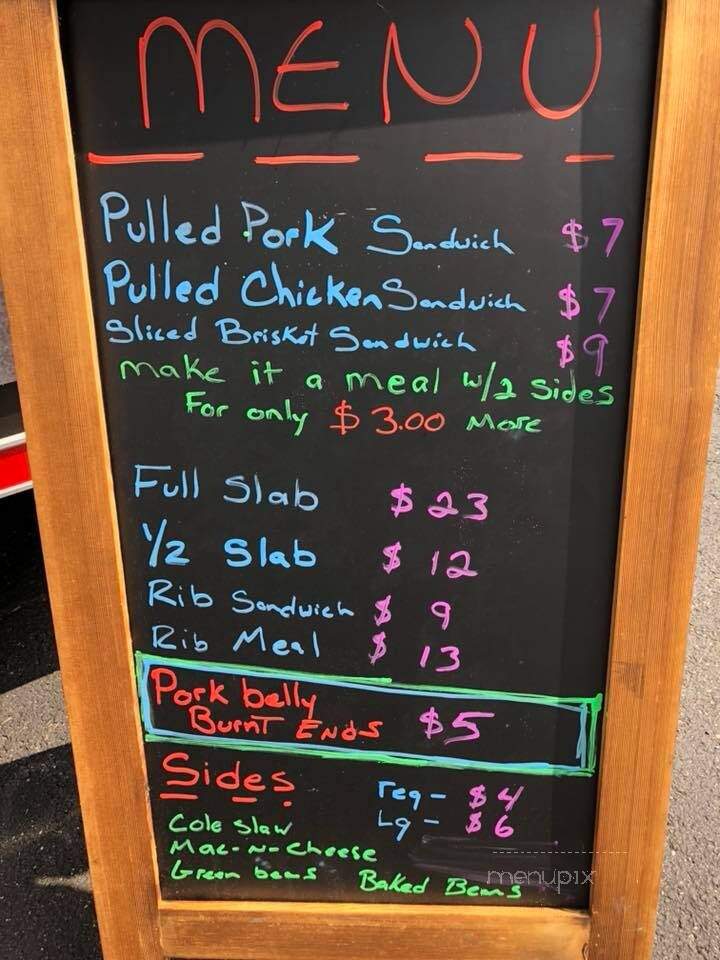 MENU
Pulled Pork Sandwich $7
Pulled Chicken Sandwich $7
Sliced Brisket Sandwich $9
make it a meal w/2 sides
For only $3.00 More
Full Slab $23
1/2 Slab $12
Rib Sandwich $9
Rib Meal $13
Pork belly
Burnt Ends $5
Sides reg - $4
Lg - $6
Cole Slaw
Mac-N-Cheese
Green beans Baked Beans
menupix